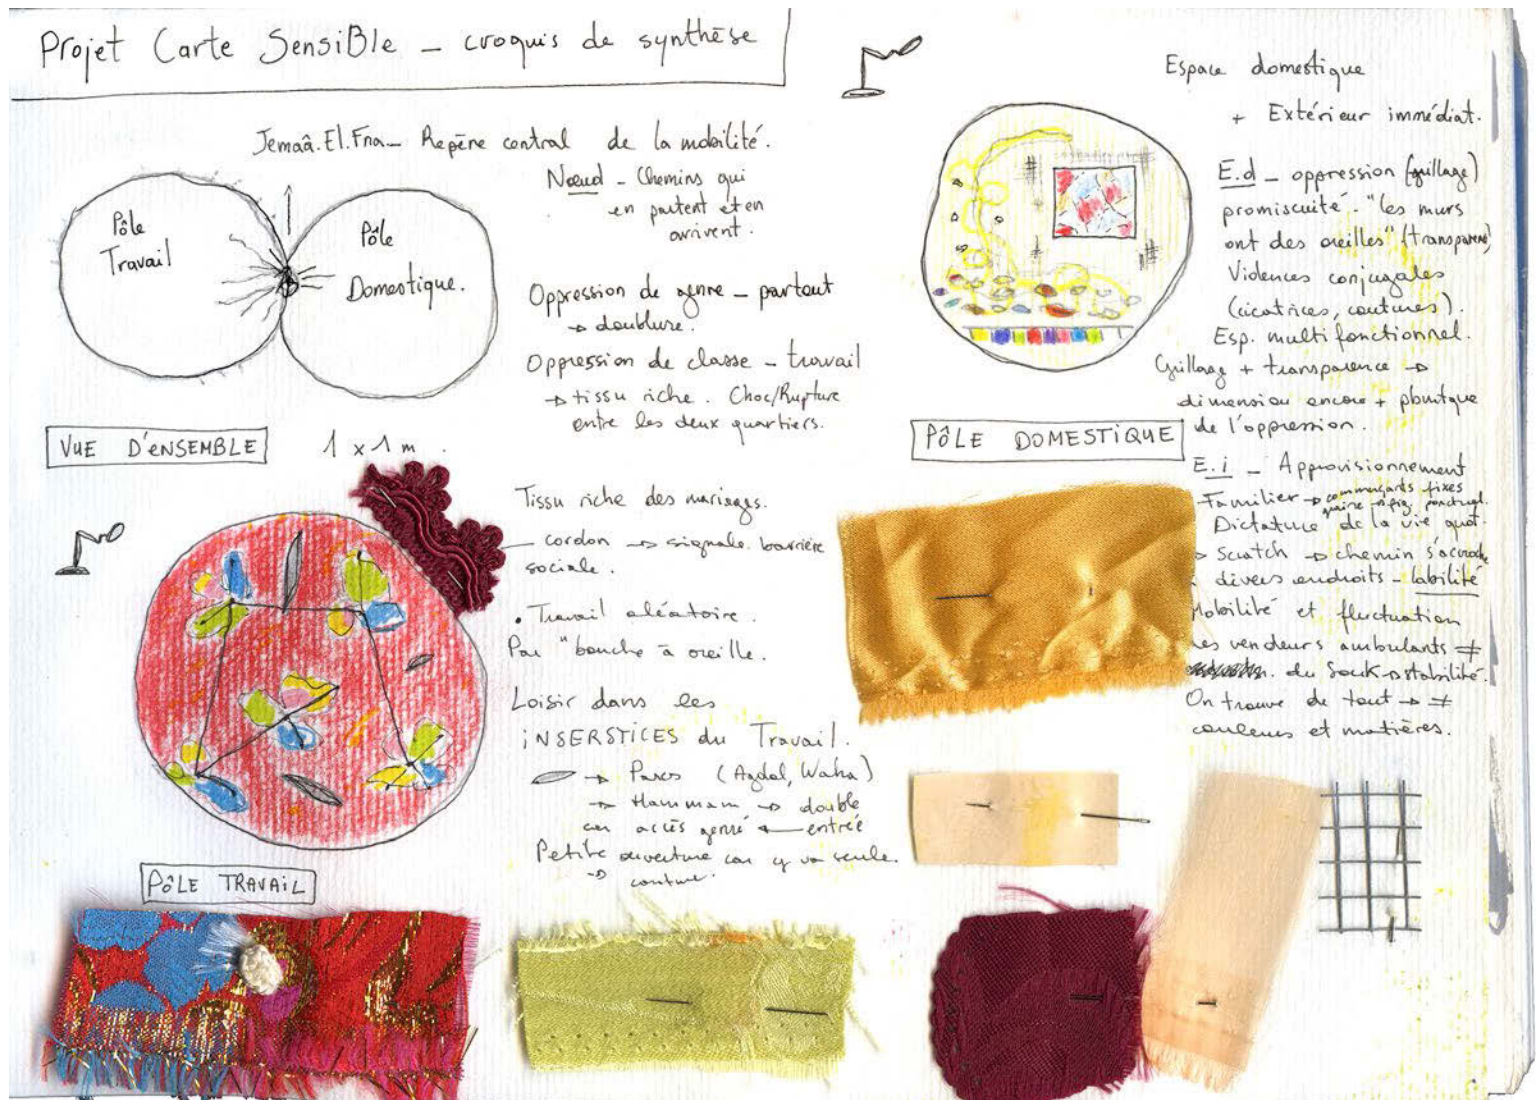 Projet Carte SensiBle – croquis de synthèse
Jemaâ.El.Fna – Repère central de la mobilité.
Nœud – Chemins qui
en partent et en
arrivent.
Pôle
Travail
Pôle
Domestique.
Oppression de genre – partout
→ doublure.
Oppression de classe – travail
→ tissu riche. Choc/Rupture
entre les deux quartiers.
VUE D'ENSEMBLE
1 x 1 m.
Tissu riche des mariages.
cordon → signale barrière
sociale.
• Travail aléatoire.
Par "bouche à oreille.
Loisir dans les
INSERSTICES du Travail.
→ Parcs (Agdal, Waha)
→ Hammam → double
car accès genré ← entrée
Petite ouverture car y va seule.
→ couture.
PÔLE TRAVAIL
Espace domestique
+ Extérieur immédiat.
E.d – oppression (grillage)
promiscuité. "les murs
ont des oreilles" (transparence)
Violences conjugales
(cicatrices, coutures).
Esp. multifonctionnel.
Grillage + transparence →
dimension encore +
de l'oppression.
PÔLE DOMESTIQUE
E.i – Approvisionnement
Familier → commerçants fixes
ponctuel.
Dictature de la vie quot.
→ Scratch → chemin s'accroche
à divers endroits – labilité
Mobilité et fluctuation
des vendeurs ambulants ≠
du Souk → stabilité.
On trouve de tout → ≠
couleurs et matières.